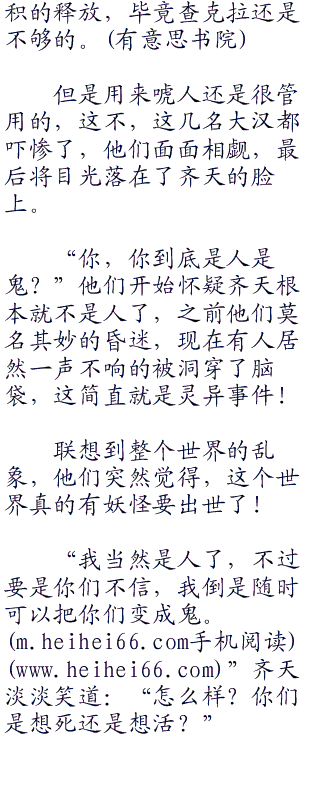 积的释放，毕竟查克拉还是
不够的。(有意思书院)
但是用来唬人还是很管
用的，这不，这几名大汉都
吓惨了，他们面面相觑，最
后将目光落在了齐天的脸
上。
“你，你到底是人是
鬼？”他们开始怀疑齐天根
本就不是人了，之前他们莫
名其妙的昏迷，现在有人居
然一声不响的被洞穿了脑
袋，这简直就是灵异事件！
联想到整个世界的乱
象，他们突然觉得，这个世
界真的有妖怪要出世了！
“我当然是人了，不过
要是你们不信，我倒是随时
可以把你们变成鬼。
(m.heihei66.com手机阅读)
(www.heihei66.com)”齐天
淡淡笑道：“怎么样？你们
是想死还是想活？”